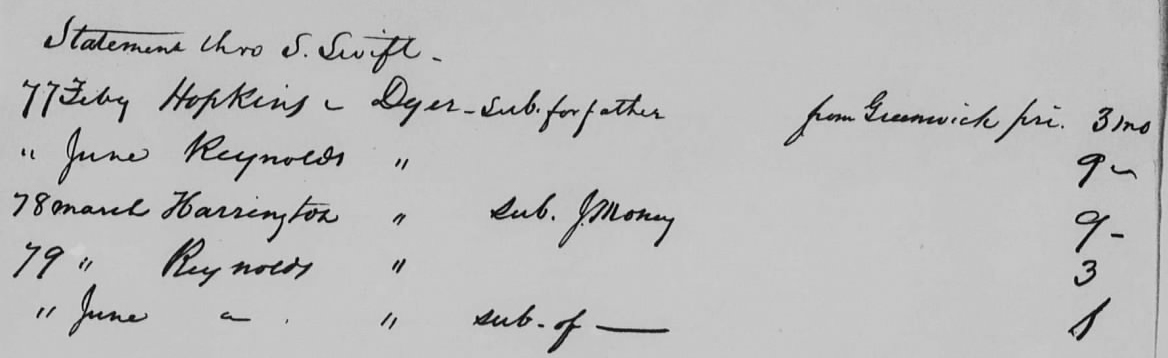 Statement thro S. Swift -
77 Feby Hopkins - Dyer - sub. for father from Greenwich pri. 3 mo
" June Reynolds " 9 -
78 march Harrington " sub. J. Money 9 -
79 " Reynolds " 3
" June - . " sub - of —